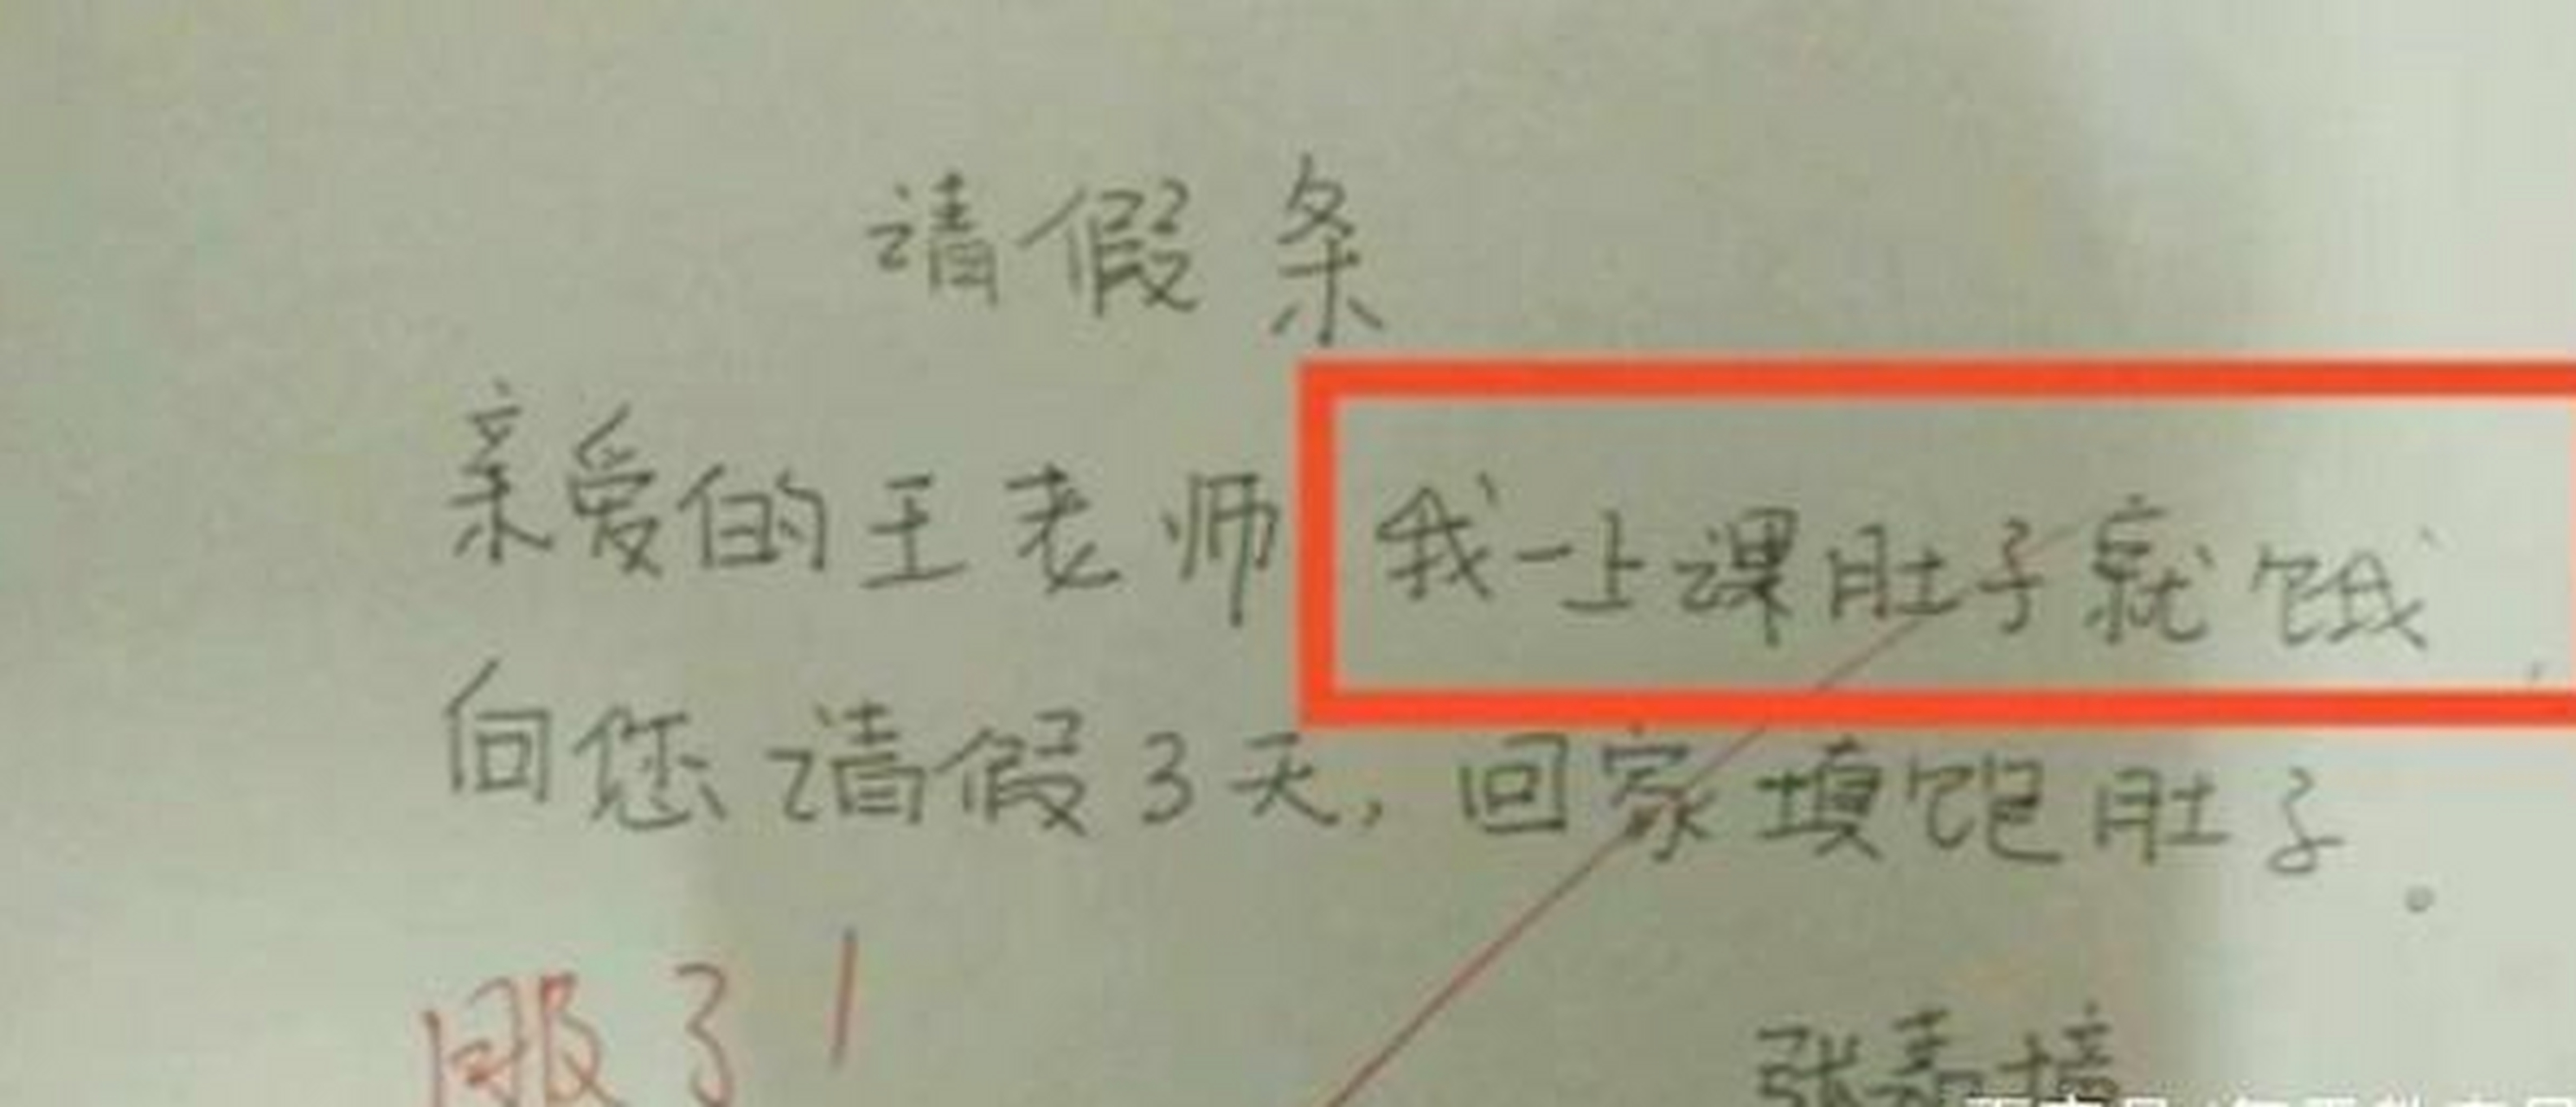 请假条
亲爱的王老师 我一上课肚子就饿,
向您请假3天, 回家填饱肚子。
服了!
张嘉